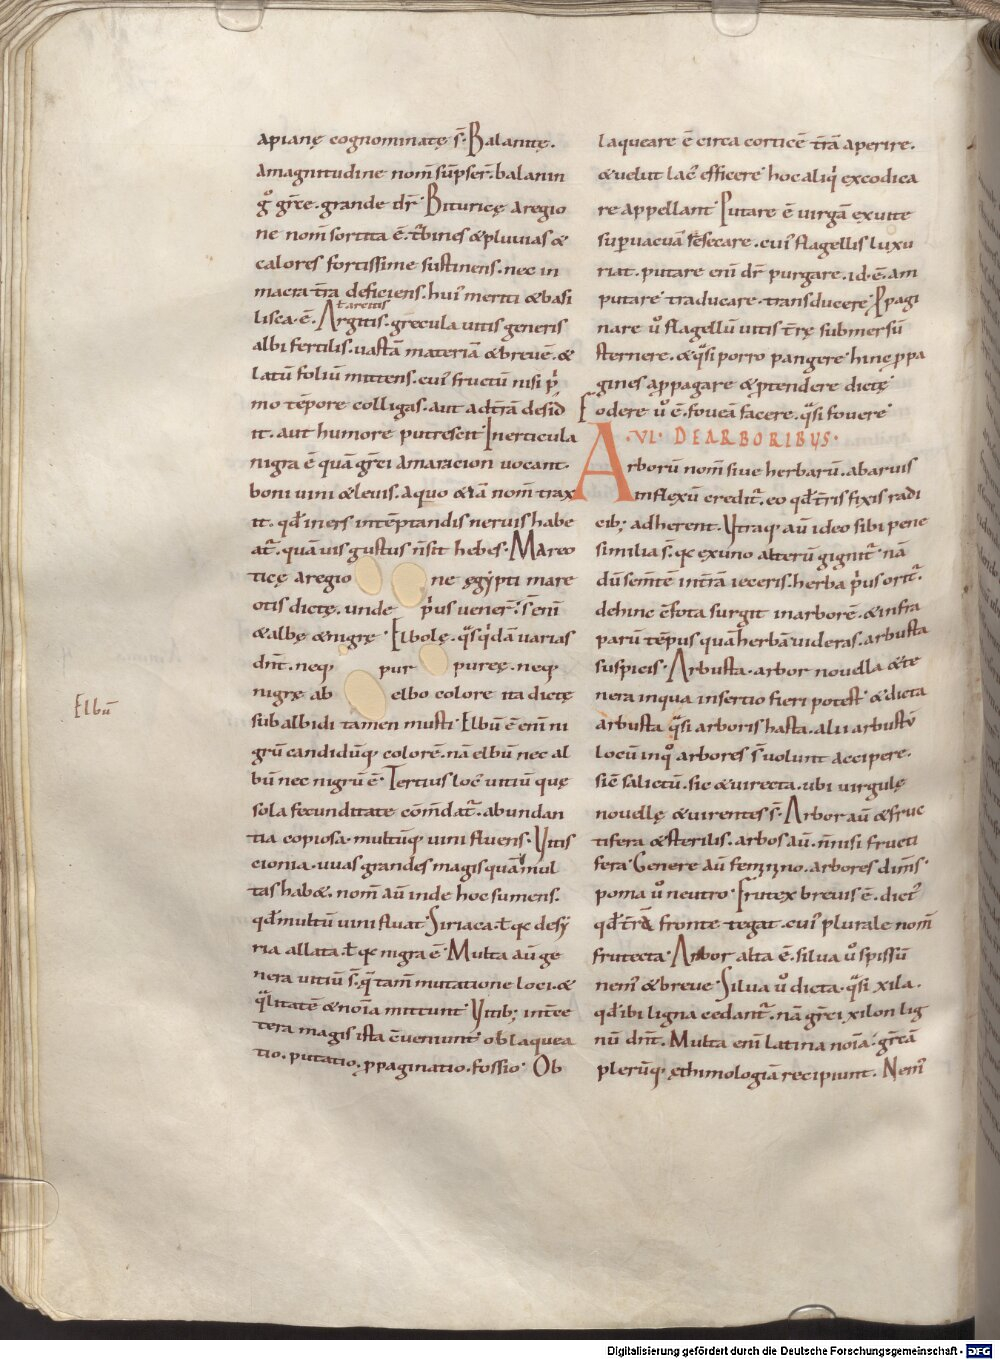 apianę cognominatę s̄. Balanitę.
amagnitudine nom̄ sūpser̄. balanin
gͦ grͨe. grande dr̄. Bituricę aregio
ne nom̄ sortita ē. t̄bines & pluuias &
calores fortissime sustinens. nec in
macra t̄ra deficiens. huiꝰ meriti & basi
ł arcitis
lisca. ē. Argitis. gręcula uitis generis
albi fertilis. uastā materiā & breuē. &
latū foliū mittens. cuiꝰ fructū nisi pͥ
mo tēpore colligas. aut adt̄rā desid
it. aut humore putrescit. Inerticula
nigra ē quā grͨei amaracion uocant.
boni uini & leuis. aquo & iā nom̄ trax
it. qd̄ iners intēptandis neruis habe
at̄. quāuis gustus n̄sit hebes. Mareo
ticę aregio ne ęgypti mare
otis dictę. unde pͥus uener̄. s̄ enī
& albę & nigrę. Elbolę. qͣsi qͥdā uarias
dn̄t. neqꝫ pur purеę. neqꝫ
nigrę ab elbo colore ita dictę
subalbidi tamen musti. Elbū ē enī ni
grū candidūqꝫ colorē. nā elbū nec al
bū nec nigrū ē. Tertius locꝰ uitiū quę
sola fecunditate com̄dat̄. abundan
tia copiosa. multūqꝫ uini fluens. Vitis
cionia. uuas grandes magis quā mul
tas hab&. nom̄ aū inde hoc sumens.
qd̄ multū uini fluat. Siriaca. ł qꝫ desy
ria allata. ł qꝫ nigra ē. Multa aū ge
nera uitiū s̄. qͣ tam̄ mutatione loci. &
qͣlitatē & nom̄a mittunt. Vitibꝫ int̄ ce
tera magis ista ēueniunt. oblaquea
tio. putatio. ꝓpaginatio. fossio. Ob
Elbū
laqueare ē circa corticē t̄rā aperire.
& uelut lacꝰ efficere. hoc aliqͥ excodica
re appellant. Putare ē uirgā exuite
suꝑuacuā resecare. cuiꝰ flagellis luxu
riat. putare enī dr̄ purgare. id. ē. am
putare. traducare. transducere. Ꝓpagi
nare uͦ flagellū uitis t̄rę submersū
sternere. & qͣsi porro pangere. hinc ꝓpa
gines aꝓpagare & ꝓtendere dictę.
Fodere uͦ ē. foueā facere. qͣsi fouere.
.VI. DE ARBORIBUS.
Arborū nom̄ siue herbarū. abaruis
inflexū creditͬ. eo qd̄ t̄ris fixis radi
cibꝫ adherent. Vtraqꝫ aū ideo sibi pene
similia s̄. qꝫ exuno alterū gignitͬ. nā
dū sem̄te int̄rā ieceris. herba pͥus oritͬ.
dehinc ēfota surgit inarborē. & infra
parū tēpus quā herbā uideras. arbusta
suspicis. Arbusta. arbor nouella & te
nera inqua insertio fieri potest. & dicta
arbusta qͣsi arboris hasta. alii arbustū
locū inqͦ arbores s̄ uolunt accipere.
sicͭ salictū. sic & uirecta. ubi uirgulę
nouellę & uirentes s̄. Arbor aū & fruc
tifera & sterilis. arbos aū. n̄nisi fructi
fera. Genere aū feminino. arbores dimꝰ.
poma uͦ neutro. Frutex breuis ē. dictꝰ
qd̄ t̄rā fronte tegat. cuiꝰ plurale nom̄
frutecta. Arbor alta ē. silua uͦ spissū
nemꝰ & breue. Silua uͦ dicta. qͣsi xila.
qd̄ ibi ligna cedantͬ. nā grͨei xilon lig
nū dn̄t. Multa enī latina nom̄a. grͨeā
plerūqꝫ ęthimologiā recipiunt. Nemꝰ
Digitalisierung gefördert durch die Deutsche Forschungsgemeinschaft - DFG